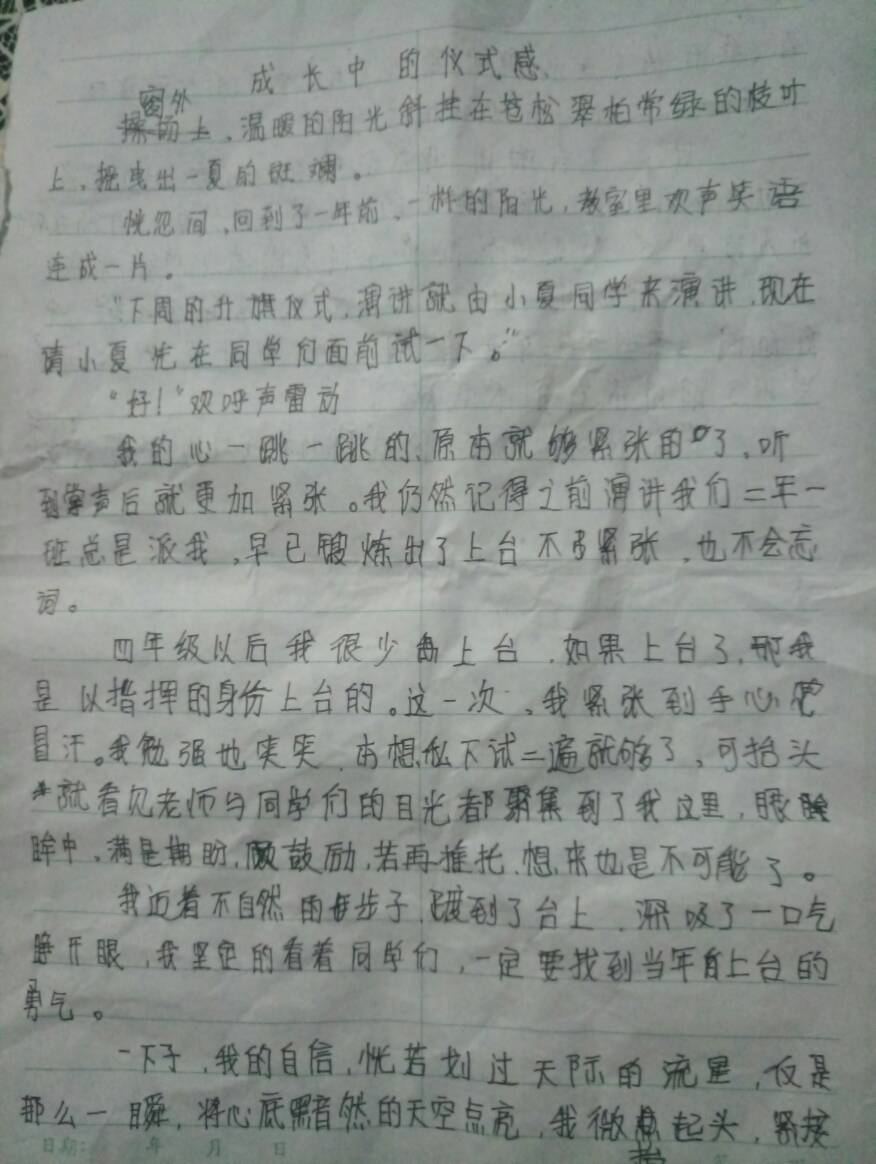 成长中的仪式感
窗外
操场上，温暖的阳光斜挂在苍松翠柏常绿的枝叶
上，摇曳出一夏的斑斓。
恍忽间，回到了一年前，一样的阳光，教室里欢声笑语
连成一片。
“下周的升旗仪式，演讲就由小夏同学来演讲，现在
请小夏先在同学们面前试一下。”
“好！”欢呼声雷动
我的心一跳一跳的，原本就够紧张的了，听
到掌声后就更加紧张。我仍然记得之前演讲我们二年一
班总是派我，早已锻炼出了上台不紧张，也不会忘
词。
四年级以后我很少上台，如果上台了，那我
是以指挥的身份上台的。这一次，我紧张到手心
冒汗。我勉强地笑笑，本想私下试二遍就够了，可抬头
就看见老师与同学们的目光都聚集到了我这里，眼
眸中，满是期盼，鼓励，若再推托，想来也是不可能了。
我迈着不自然的步子，踱到了台上，深吸了一口气
睁开眼，我坚定的看着同学们，一定要找到当年上台的
勇气。
一下子，我的自信，恍若划过天际的流星，仅是
那么一瞬，将心底黯然的天空点亮，我微起头，紧接
抬
日期： 年 月 日